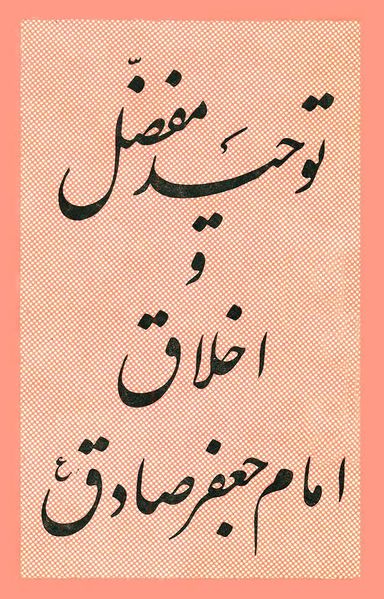 توحید مفضّل
و
اخلاق
امام جعفر صادق ع